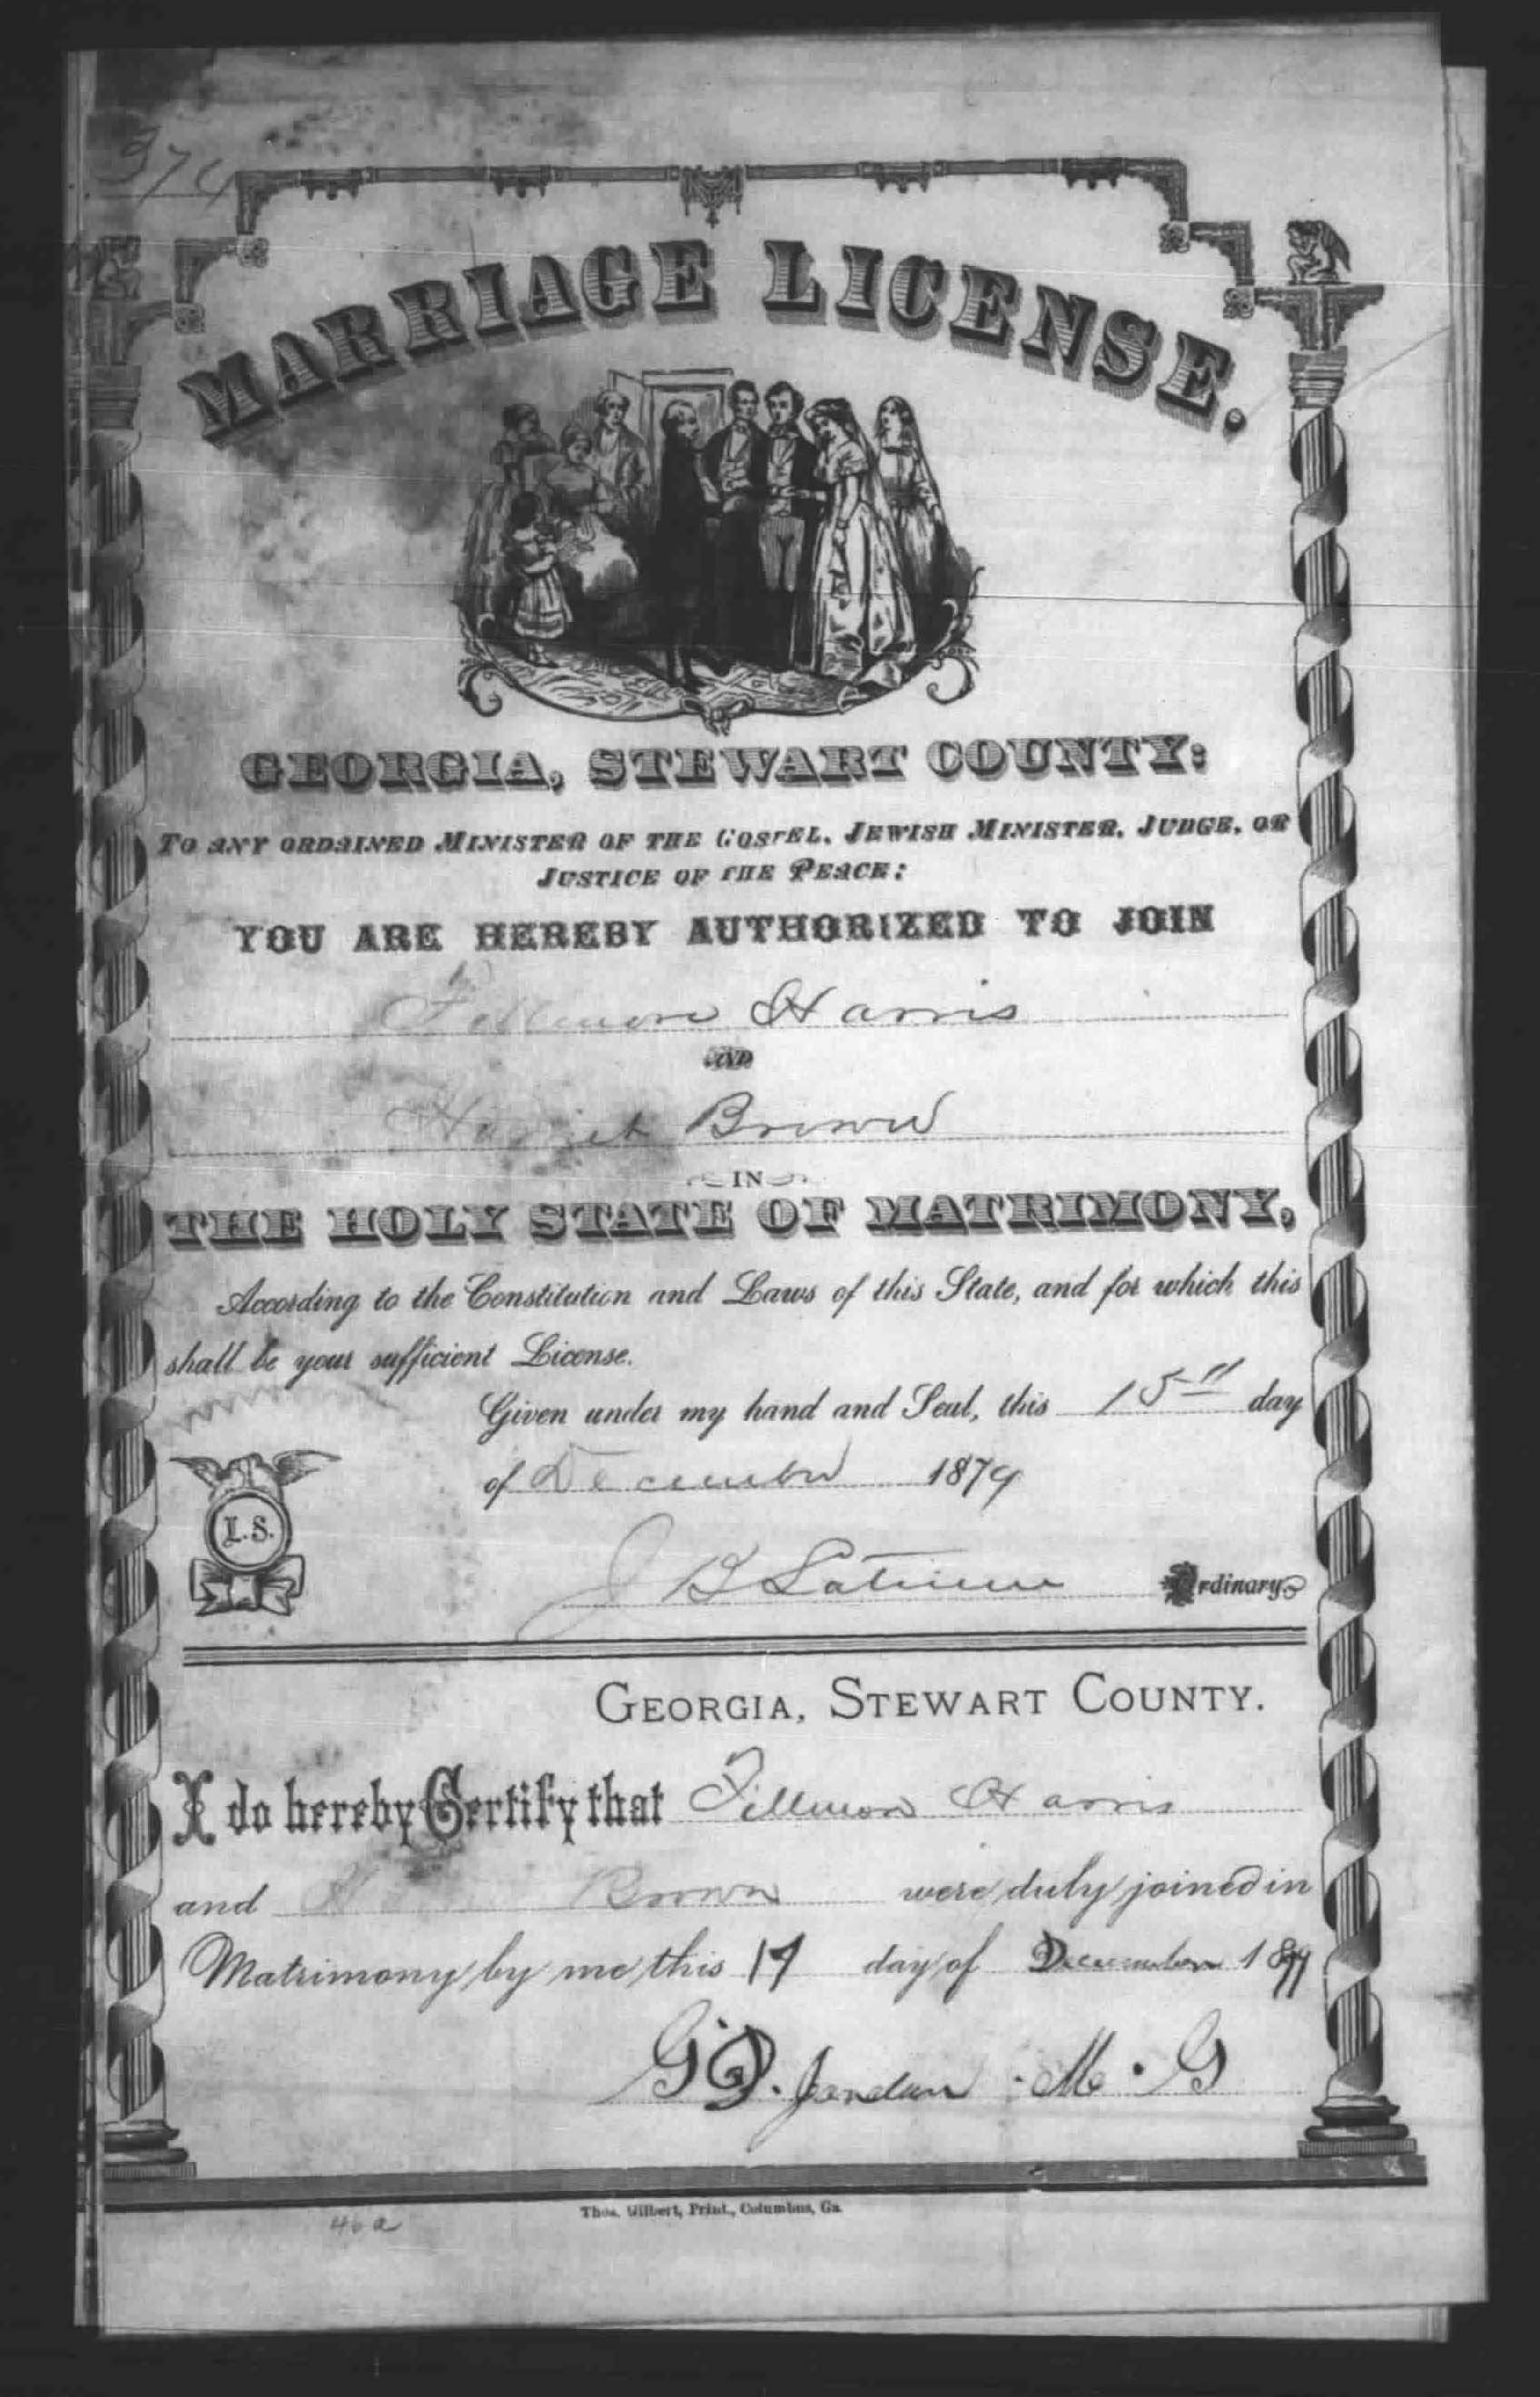 374
MARRIAGE LICENSE.
GEORGIA, STEWART COUNTY:
TO ANY ORDAINED MINISTER OF THE GOSPEL, JEWISH MINISTER, JUDGE, OR
JUSTICE OF THE PEACE:
YOU ARE HEREBY AUTHORIZED TO JOIN
Fillmore Harris
AND
Harriet Brown
IN
THE HOLY STATE OF MATRIMONY,
According to the Constitution and Laws of this State, and for which this
shall be your sufficient License.
Given under my hand and Seal, this 15th day
of December 1879
L.S.
J B Latimer Ordinary
GEORGIA, STEWART COUNTY.
I do hereby Certify that Fillmore Harris
and Brown were duly joined in
Matrimony by me this 17 day of December 1879
G D. Jordan . M. G
Thos. Gilbert, Print., Columbus, Ga.
46a